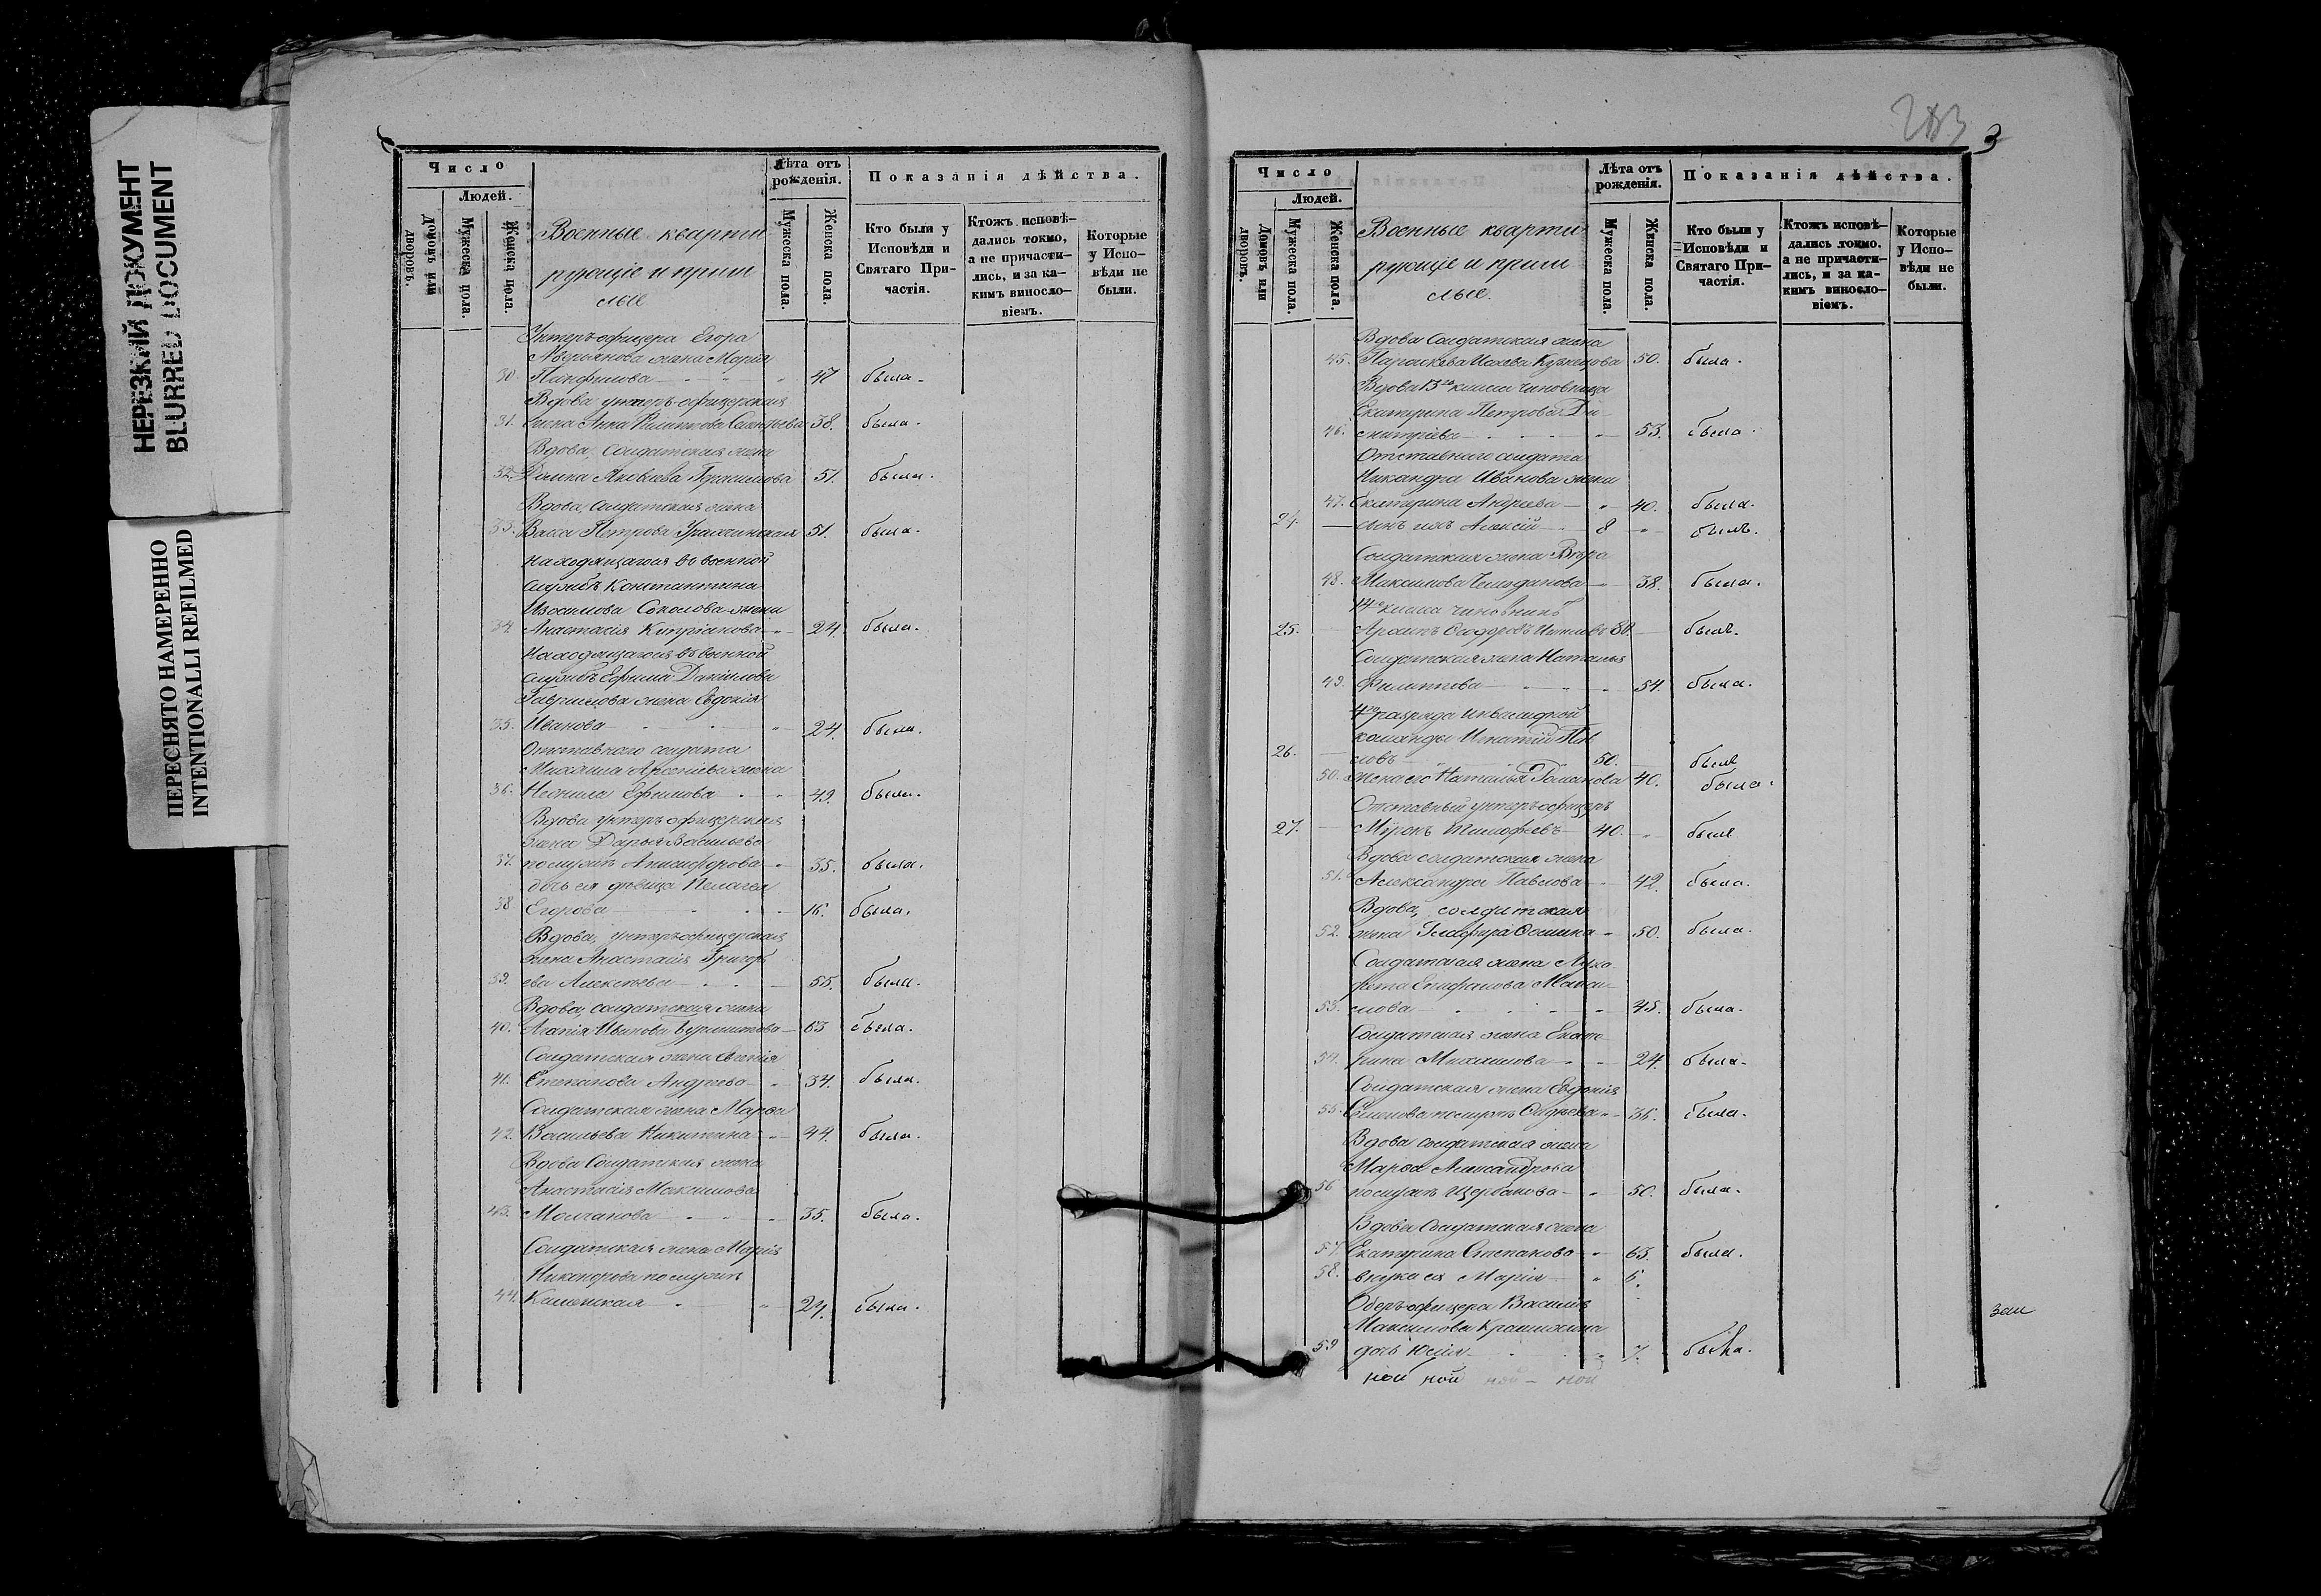 НЕРЕЗКИЙ ДОКУМЕНТ
BLURRED DOCUMENT
ПЕРЕСНЯТО НАМЕРЕННО
INTENTIONALLI REFILMED
Число
Людей.
Домовъ или дворовъ.
Мужеска пола.
Женска пола.
Военные кварти
рующіе и приш
лые
Лѣта отъ рожденія.
Мужеска пола.
Женска пола.
Показанія дѣйства.
Кто были у Исповѣди и Святаго Причастія.
Ктожъ исповѣдались токмо, а не причастились, и за какимъ винословіемъ.
Которые у Исповѣди не были.
Унтеръ-офицера Егора
Аверьянова жена Марія
30. Панфилова 47 была.
Вдова унтеръ-офицерская
31. жена Анна Филиппова 38. была.
Вдова, солдатская жена
32. Яковлева Герасимова 51. была.
Вдова, солдатская жена
33. Васса Петрова 51. была.
Находящагося въ военной
службѣ Константина
Изосимова Соколова жена
34. Анастасія Кипріанова 24. была.
Находящагося въ военной
службѣ Ефима Данилова
Гаврилова жена Евдокія
35. Иванова 24. была.
Отставнаго солдата
Михаила Арсеніева жена
36. Неонила Ефимова 49. была.
Вдова унтеръ офицерская
жена Дарья Васильева
37. по мужѣ Анисифорова 35. была.
дочь ея дѣвица Пелагея
38. Егорова 16. была.
Вдова, унтеръ-офицерская
жена Анастасія Григорь
39. ева Алексѣева 55. была.
Вдова, солдатская жена
40. Агапія Иванова 63 была.
Солдатская жена Евгенія
41. Степанова Андреева 34. была.
Солдатская жена Марѳа
42. Васильева Никитина 44. была.
Вдова Солдатская жена
Анастасія Максимова
43. Молчанова 35. была.
Солдатская жена Марія
Никанорова по мужѣ
44. Каменская 27. была.
283
3
Число
Людей.
Домовъ или дворовъ.
Мужеска пола.
Женска пола.
Военные кварти
рующіе и приш
лые.
Лѣта отъ рожденія.
Мужеска пола.
Женска пола.
Показанія дѣйства.
Кто были у Исповѣди и Святаго Причастія.
Ктожъ исповѣдались токмо. а не причастились, и за какимъ винословіемъ.
Которые у Исповѣди не были.
Вдова Солдатская жена
45. Параскева Кузнецова 50. была.
Вдова 13го класса чиновница
Екатерина Петрова Ди
46. митріева 53. была.
Отставнаго солдата
Никандра Иванова жена
47. Екатерина Андреева 40. была.
24. сынъ ихъ Алексій 8 былъ.
Солдатская жена Вѣра
48. Максимова Чемоданова 38. была.
14го класса чиновникъ
25. Архипъ Ѳеодоровъ 80. былъ.
Солдатская жена Наталья
49. Филиппова 54. была.
4го разряда инвалидной
команды Игнатій Пав
26. ловъ 50. былъ
50. жена его Наталья Романова 40. была.
Отставный унтеръ-офицеръ
27. Миронъ Тимофеевъ 40. былъ
Вдова солдатская жена
51. Александра Павлова 42. была.
Вдова, солдатская
52. жена Глафира Ѳомина 50. была.
Солдатская жена
Епифанова
53. 45. была.
Солдатская жена Екате
54. рина Михайлова 24. была.
Солдатская жена Евдокія
55. Семенова по мужѣ 36. была.
Вдова солдатская жена
Марѳа Александрова
56 по мужѣ Щербакова 50. была.
Вдова Солдатская жена
57. Екатерина Степанова 63. была.
58. внука ея Марія 6.
Оберъ-офицера Василія
Максимова
59 дочь Юлія 7. была.
ной ной ной - ной